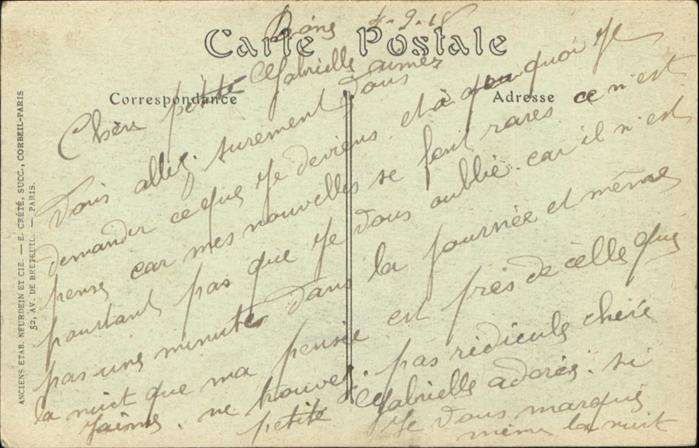 Bône 4-9-18
Carte Postale
Chère petite Gabrielle aimée
Correspondance
Adresse
Vous allez surement vous
demander ce que je deviens et à quoi je
pense car mes nouvelles se font rares ce n'est
pourtant pas que je vous oublie. car il n'est
pas une minute dans la journée et même
la nuit que ma pensée est près de celle que
j'aime. ne trouvez pas ridicule chère
petite Gabrielle adorée. si
je vous marque
même la nuit
ANCIENS ETAB. NEURDEIN ET CIE. — E. CRÉTÉ, SUCC., CORBEIL-PARIS
52, AV. DE BRETEUIL. — PARIS.